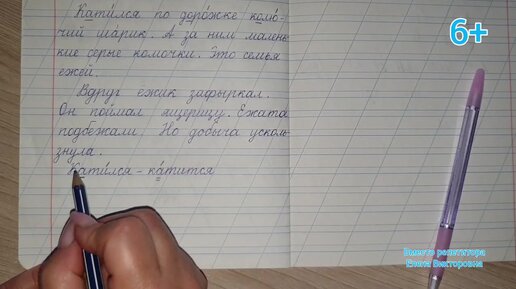 Кати́лся по доро́жке колю́-
чий шарик. А за ним малень
кие серые комочки. Это семья
ежей.
Вдруг ёжик зафыркал.
Он поймал ящерицу. Ежата
подбежали. Но добыча усколь
знула.
Кати́лся – ка́тится
6+
Вместо репетитора
Елена Викторовна